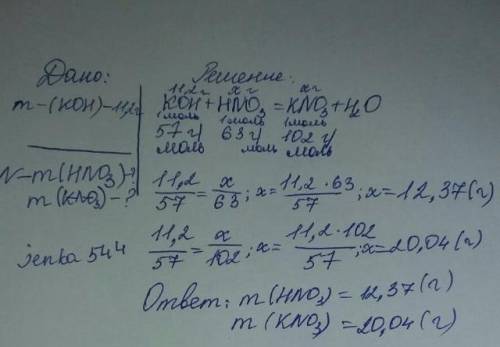 Дано:
m-(KOH)-11,2г
N-m(HNO3)-?
m(KNO3)-?
jenka 544
Решение:
11,2г xг xг
KOH+HNO3=KNO3+H2O
1моль 1моль 1моль
57 г/ 63 г/ 102 г/
моль моль моль
11,2/57 = x/63; x = 11,2·63/57; x = 12,37(г)
11,2/57 = x/102; x = 11,2·102/57; x = 20,04(г)
Ответ: m(HNO3) = 12,37(г)
m(KNO3) = 20,04(г)